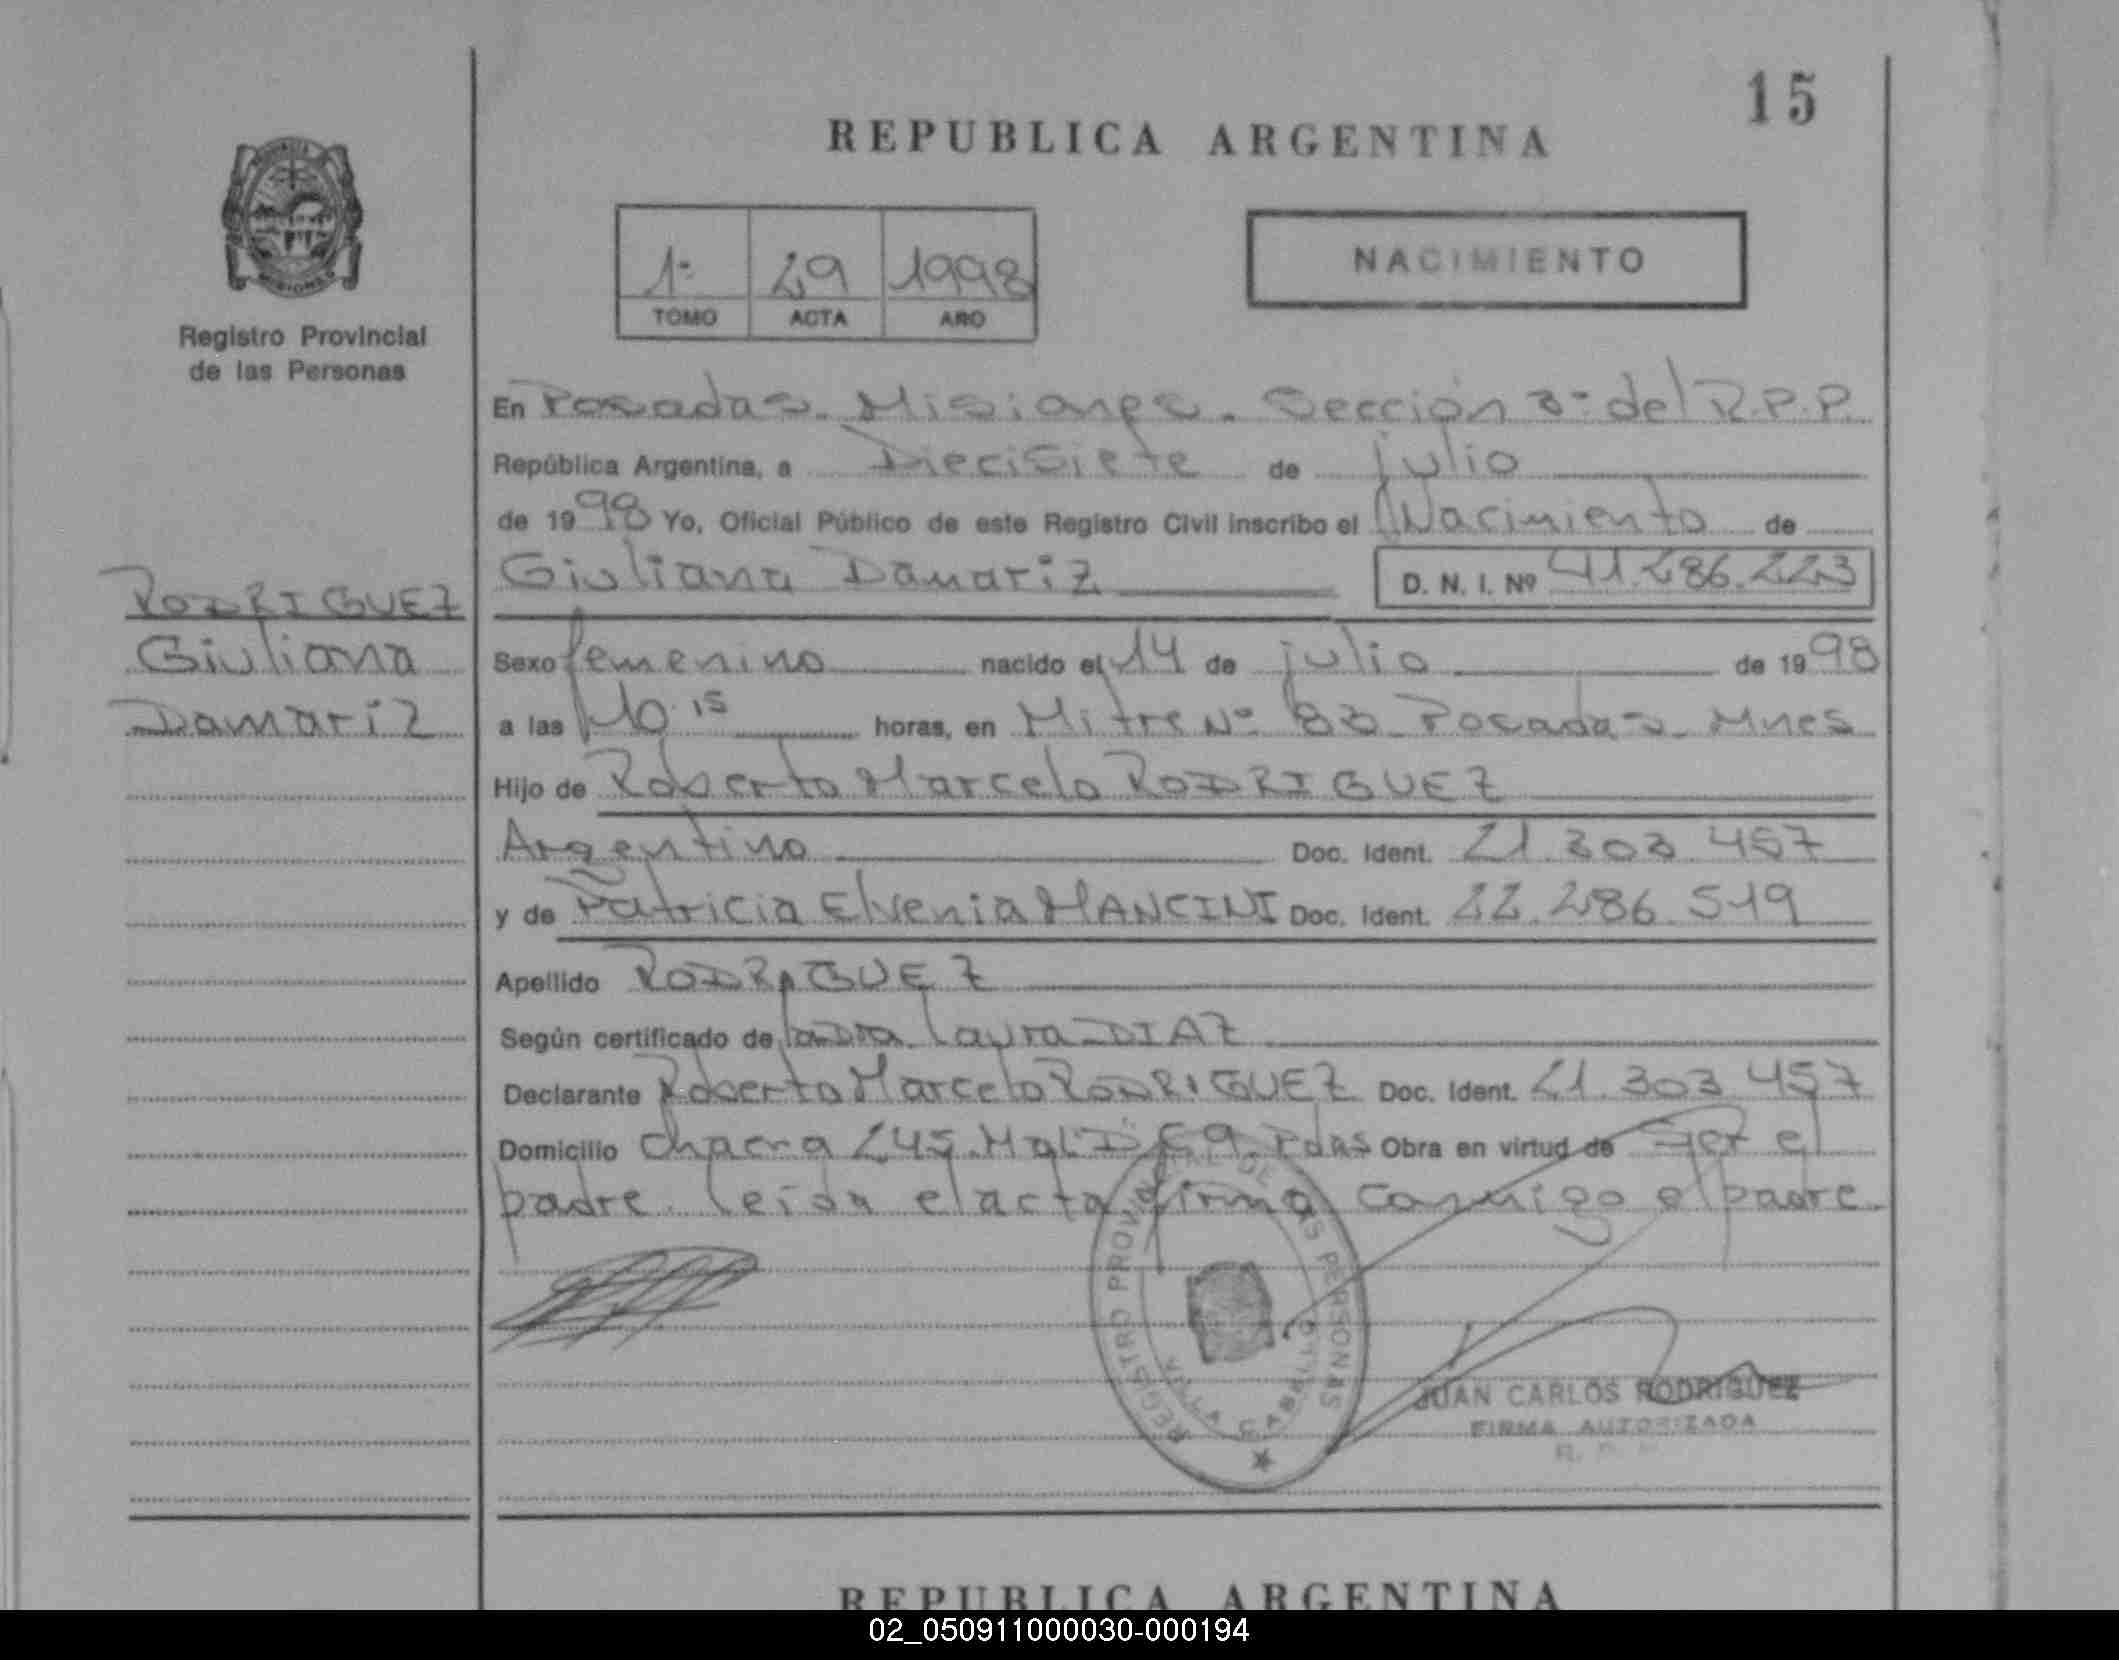 15
REPUBLICA ARGENTINA
1º 29 1998
TOMO ACTA AÑO
NACIMIENTO
Registro Provincial
de las Personas
En Posadas. Misiones. Sección 3º del R.P.P.
República Argentina, a Diecisiete de julio
de 1998 Yo, Oficial Público de este Registro Civil inscribo el Nacimiento de
Giuliana Damariz D. N. I. Nº 41.286.223
RODRIGUEZ
Giuliana
Damariz
Sexo femenino nacido el 14 de julio de 1998
a las 10.15 horas, en Mitre Nº 83 Posadas. Mnes
Hijo de Roberto Marcelo RODRIGUEZ
Argentino Doc. Ident. 21.303.457
y de Patricia Elvenia MANCINI Doc. Ident. 22.286.519
Apellido RODRIGUEZ
Según certificado de la Dra. Laura DIAZ
Declarante Roberto Marcelo RODRIGUEZ Doc. Ident. 21.303.457
Domicilio Chacra 245. "D" Pdas Obra en virtud de Ser el
padre. leída el acta firma conmigo el padre.
REGISTRO PROVINCIAL DE LAS PERSONAS
VILLA CABELLO
JUAN CARLOS RODRIGUEZ
FIRMA AUTORIZADA
REPUBLICA ARGENTINA
02_050911000030-000194